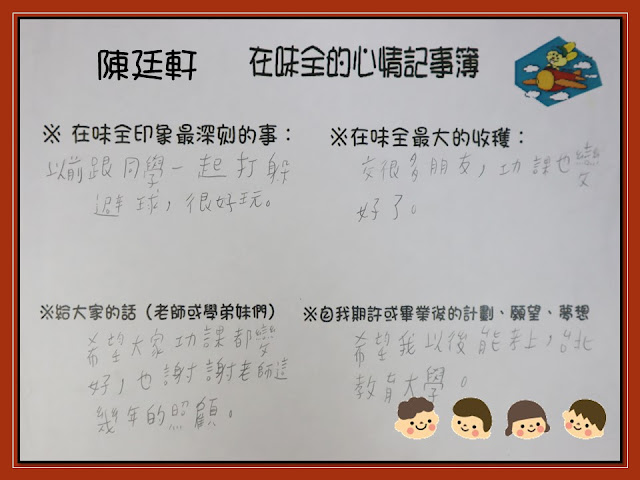 陳廷軒 在味全的心情記事簿
※ 在味全印象最深刻的事：
以前跟同學一起打躲
避球，很好玩。
※在味全最大的收穫：
交很多朋友，功課也變
好了。
※給大家的話（老師或學弟妹們）
希望大家功課都變
好，也謝謝老師這
幾年的照顧。
※自我期許或畢業後的計劃、願望、夢想
希望我以後能考上，台北
教育大學。